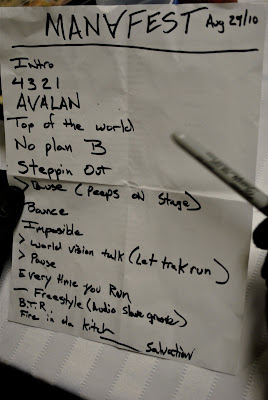 MAN∀FEST Aug 29/10
Intro
4321
AVALAN
Top of the world
No plan B
Steppin Out
> Pause (Peeps on Stage)
Bounce
Impossible
> World vision talk (Let trak run)
> Pause
Every time you Run
— Freestyle (Audio Slave groove)
B.T.R.
Fire in da kitch
Salvation